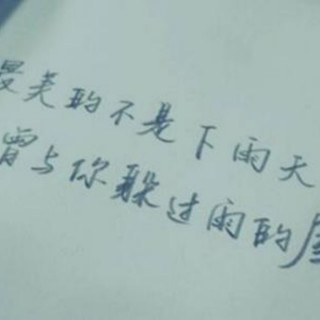 最美的不是下雨天
曾与你躲过雨的